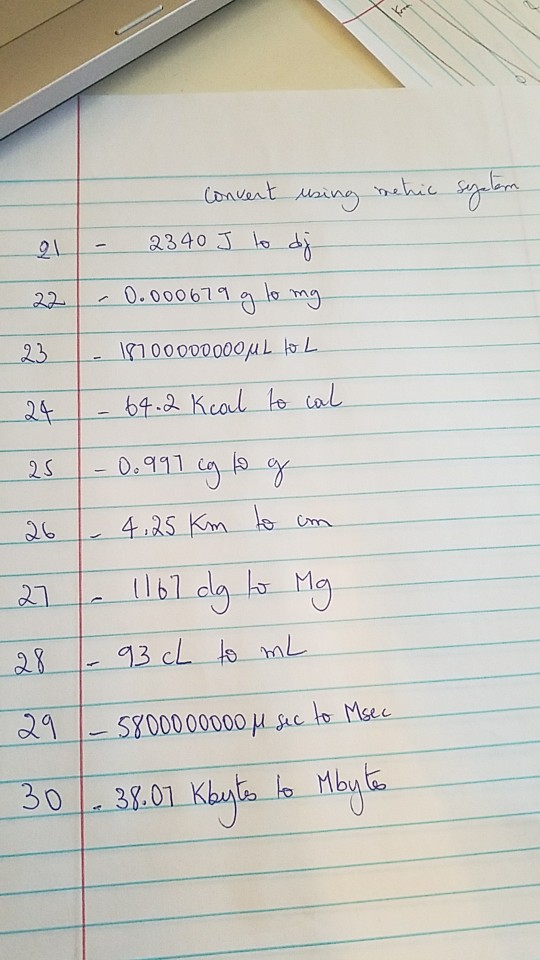 Convert using metric system
21 - 2340 J to dj
22 - 0.000679 g to mg
23 - 18700000000μL to L
24 - 64.2 Kcal to cal
25 - 0.997 cg to g
26 - 4.25 Km to cm
27 - 1167 dg to Mg
28 - 93 cL to mL
29 - 5800000000 μ sec to Msec
30 - 38.07 Kbytes to Mbytes